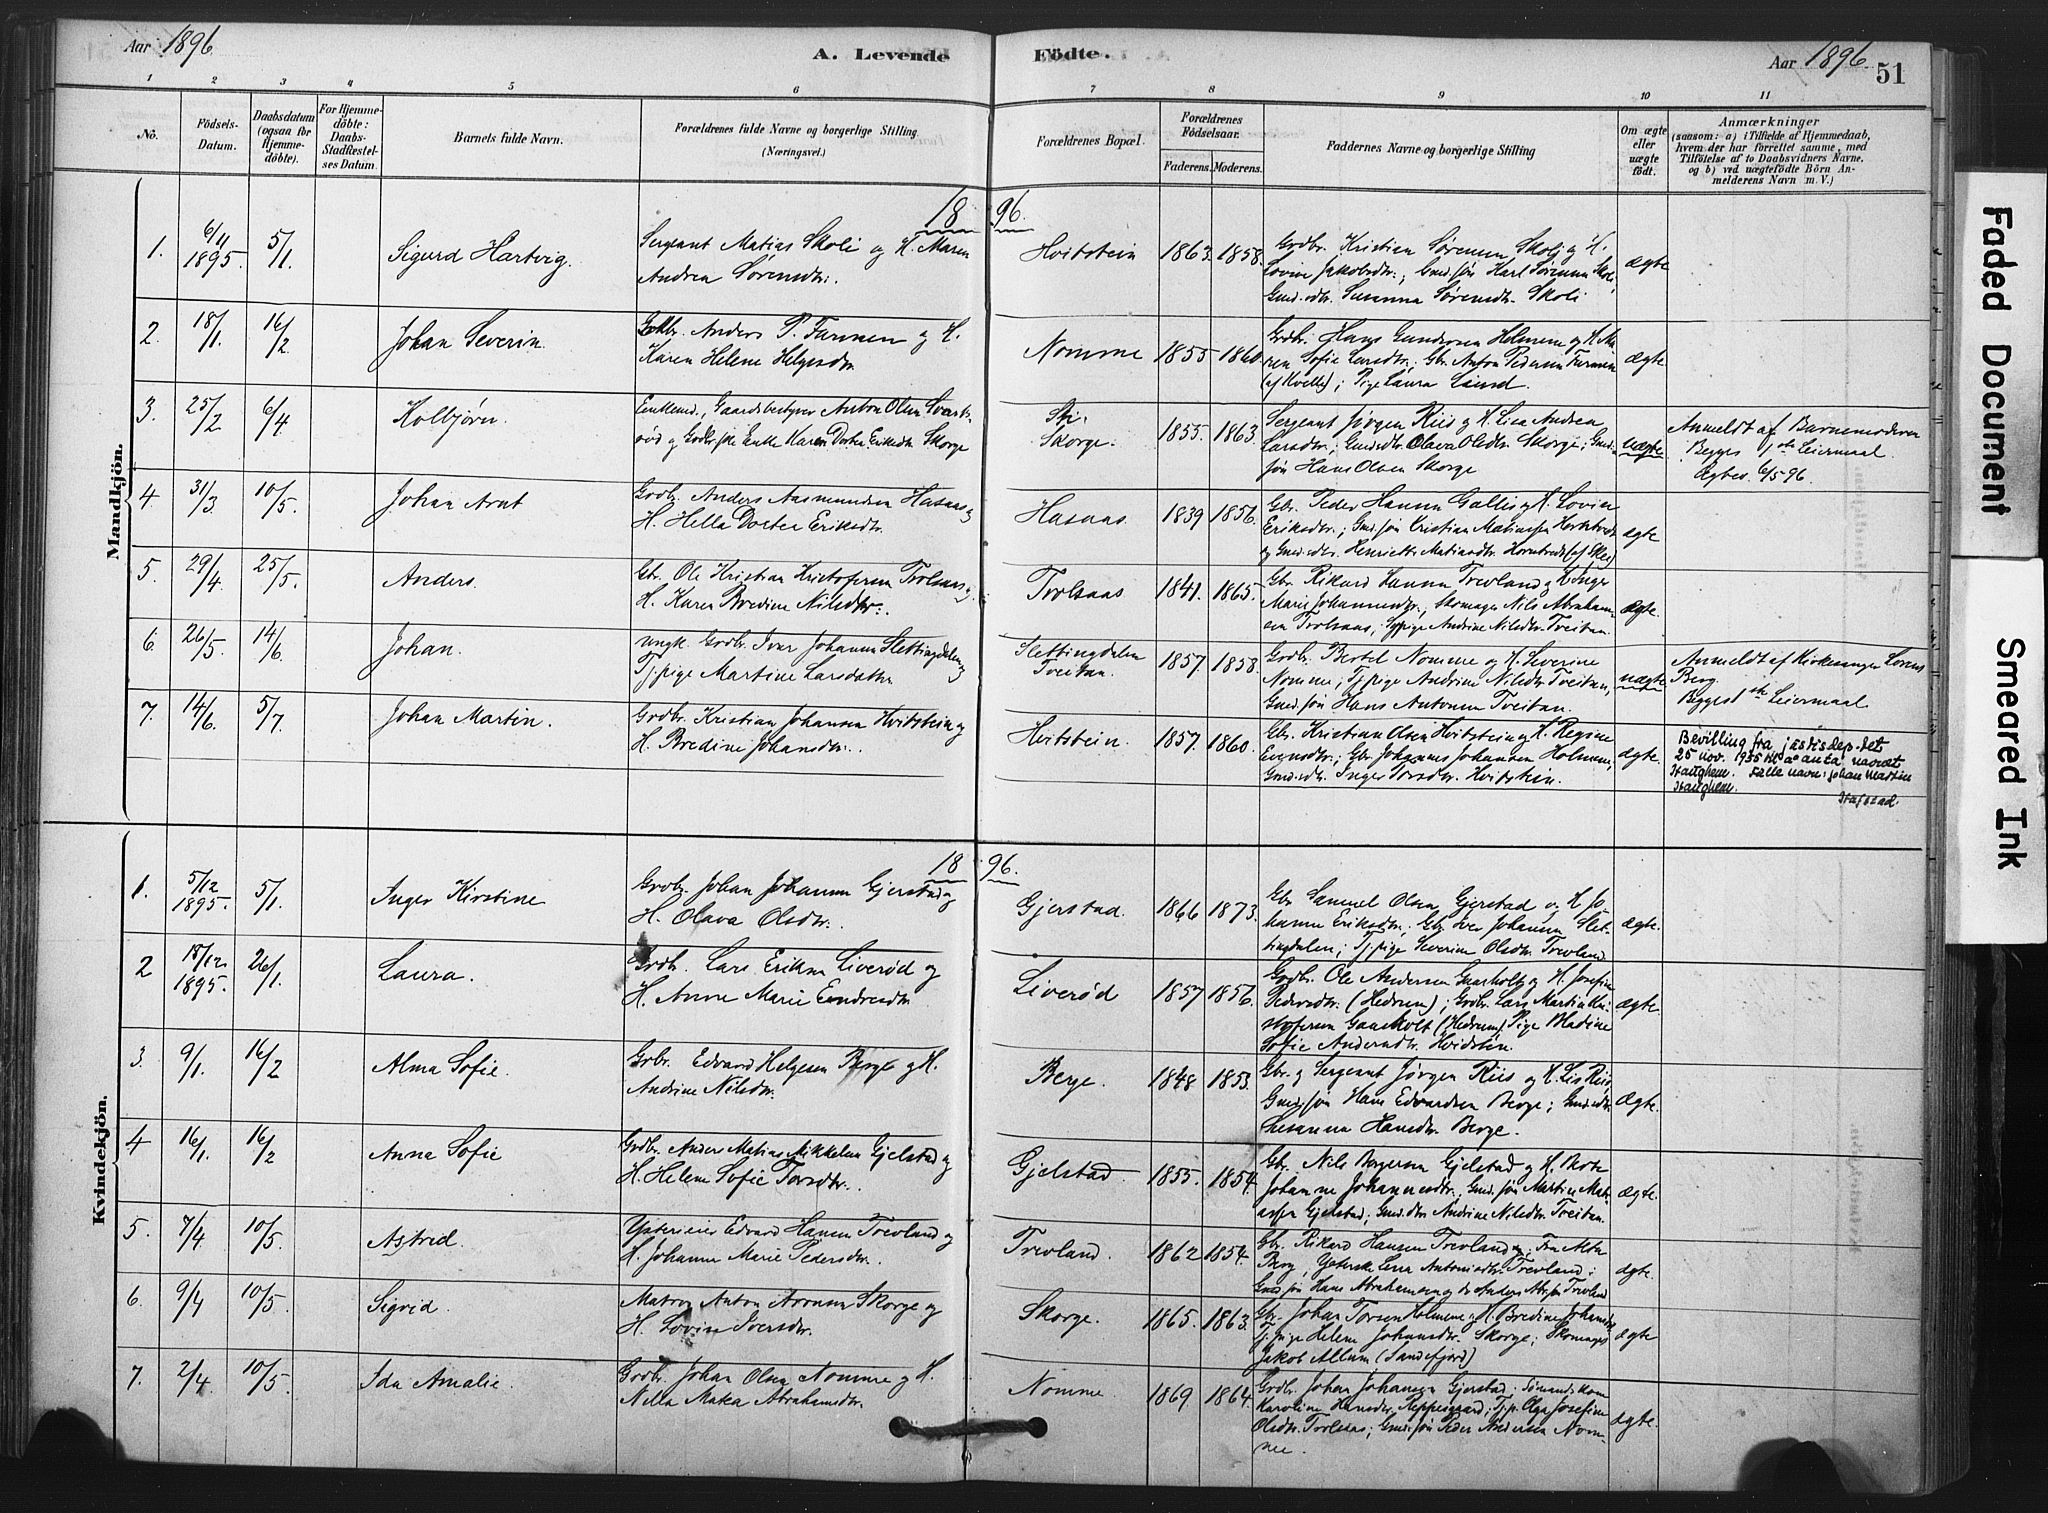 Aar 1896.
A. Levende Födte.
Aar 1896.
51
1 2 3 4 5 6 7 8 9 10 11
No.
Födsels-Datum.
Daabsdatum (ogsaa for Hjemme-döbte).
For Hjemme-döbte: Daabs-Stadfæstel-ses Datum.
Barnets fulde Navn.
Forældrenes fulde Navne og borgerlige Stilling.
(Næringsvei.)
Forældrenes Bopæl.
Forældrenes Födselsaar.
Faderens. Moderens.
Faddernes Navne og borgerlige Stilling
Om ægte eller uægte födt.
Anmærkninger
(saasom: a) i Tilfælde af Hjemmedaab,
hvem der har forrettet samme, med
Tilföielse af to Daabsvidners Navne,
og b) ved uægtefödte Börn An-
melderens Navn m. V.)
Mandkjön.
1896.
1. 6/11 1895. 5/1. Sigurd Hartvig.
Sergeant Matias Skoli og H. Maren
Andrea Sørensdtr.
Hvitstein 1863. 1858.
Grdbr. Kristian Sørensen Skoli og H.
Lovise Jakobsdtr.; Gmd. søn Karl Sørensen Skoli,
Gmd. dtr. Susanna Sørensdtr. Skoli
ægte
2. 18/1. 16/2 Johan Severin.
Grdbr. Anders P. Furmen og H.
Karen Helene Helgesdtr.
Nomme 1855 1860.
Grdbr. Hans Gundersen Holmene og H. Ma-
ren Sofie Larsdtr.; Gbr. Anton Pedersen Furmen
(af Kvelle); Pige Laura Lund.
ægte.
3. 25/2 6/4. Kolbjørn.
Enkemd., Gaardsbestyrer Anton Olsen Svarts-
rød og Grdbr.ske Enke Karen Dorte Eriksdtr. Skorge
Skorge. 1855. 1863.
Sergeant Jørgen Riis og H. Lisa Andrea
Larsdtr.; Gmd. dtr. Olava Olsdtr. Skorge; Gmd.
søn Hans Olsen Skorge
uægte
Anmeldt af Barnemoderen
Begges 1ste Leiermaal
Ægtev. 6/5 96.
4 31/3. 10/5. Johan Arnt
Grdbr. Anders Aasmundsen Hasaas og
H. Hella Dorter Eriksdtr.
Hasaas. 1839 1856.
Gbr. Peder Hansen Gallis og H. Lovise
Eriksdtr.; Gmd. søn Kristian Matiassen
og Gmd. dtr. Henriette Matiasdtr. (af Skee)
ægte
5. 29/4. 25/5. Anders.
Gbr. Ole Kristian Kristofersen Trolsaas og
H. Karen Bredine Nilsdtr.
Trolsaas 1841. 1865.
Gbr. Rikard Hansen Trevland og H. Inger
Marie Johannesdtr.; Skomager Nils Abraham-
sen Trolsaas; Sypige Andrine Nilsdtr. Treitan.
ægte.
6. 26/5. 14/6. Johan.
ungk. Grdbr. Iver Johansen Slettingdalen og
Tj. pige Martine Larsdatter
Slettingdalen
Treitan. 1857. 1858.
Grdbr. Bertel Nomme og H. Severine
Nomme; Tj. pige Andrine Nilsdtr. Treitan,
Gmd. søn Hans Antonsen Treitan.
uægte
Anmeldt af Kirkesanger Lorens
Berg.
Begges 1ste Leiermaal
7. 14/6. 5/7 Johan Martin.
Grdbr. Kristian Johansen Hvitstein og
H. Bredine Johansdtr.
Hvitstein. 1857. 1860.
Gbr. Kristian Olsen Hvitstein og H. Regine
Evensdtr.; Gbr. Johannes Johansen Holmene,
Gmd. dtr. Inger Torsdtr. Hvitstein.
ægte.
Bevilling fra justisdep.det
25 nov. 1935 til at anta navnet
Haughem. Fulle navn: Johan Martin
Haughem.
Kvindekjön.
1896.
1. 5/12 1895. 5/1. Inger Kirstine
Grdbr. Johan Johansen Gjerstad og
H. Olava Olsdtr.
Gjerstad. 1866 1873.
Gbr. Samuel Olsen Gjerstad og H. Jo-
hanne Eriksdtr.; Gbr. Iver Johansen Slet-
tingdalen; Tj. pige Severine Olsdtr. Trevland.
ægte.
2 18/12 1895. 26/1. Laura.
Grdbr. Lars Eriksen Liverød og
H. Anne Marie Endresdtr.
Liverød 1857 1856.
Grdbr. Ole Andersen Gausholt og H. Josefine
Pedersdtr. (Hedrum); Grdbr. Lars Martin Kri-
stofersen Gausholt (Hedrum). Pige Madine
Sofie Andersdtr. Hvidstein.
ægte.
3. 9/1. 16/2 Alma Sofie.
Grdbr. Edvard Helgesen Berge og H.
Andrine Nilsdtr.
Berge. 1848 1853.
Gbr. og Sergeant Jørgen Riis og H. Lis Riis,
Gmd. søn Hans Edvardsen Berge; Gmd. dtr.
Susanna Hansdtr. Berge.
Ægte.
4 16/1. 16/2 Anna Sofie
Grdbr. Anders Matias Mikkelsen Gjelstad og
H. Helene Sofie Torsdtr.
Gjelstad 1855. 1854.
Gbr. Nils Borgersen Gjelstad og H. Berte
Johanne Johannesdtr.; Gmd. søn Martin Mat-
iassen Gjelstad; Gmd. dtr. Andrine Nilsdtr. Treitan.
Ægte.
5. 7/4 10/5. Astrid.
Ysterieier Edvard Hansen Trevland og
H. Johanne Marie Pedersdtr.
Trevland. 1862 1854.
Gbr. Rikard Hansen Trevland og Fru Alta
Berg, Ysterske Lena Antonisdtr. Trevland;
Gmd. søn Hans Abrahamsen og do Anders Abr. søn Trevland
ægte.
6. 9/4 10/5. Sigrid.
Matros Anton Skorge og
H. Lovise Iversdtr.
Skorge. 1865. 1863.
Gbr. Johan Torsen Holmene og H. Bredine Johansdtr.
Tj. pige Helene Johansdtr. Skorge; Skomager
Jakob Allum (Sandefjord)
ægte
7. 2/4. 10/5. Ida Amalie.
Grdbr. Johan Olsen Nomme og H.
Nella Makea Abrahamsdtr.
Nomme 1869. 1864.
Grdbr. Johan Johansen Gjerstad; Sømandskone
Karoline Hansdtr. Reppesgaard; Tj. p. Olga Josefine
Olsdtr. Trolsaas; Gmd. søn Peder Andersen Nom-
me.
ægte.
Faded Document
Smeared Ink